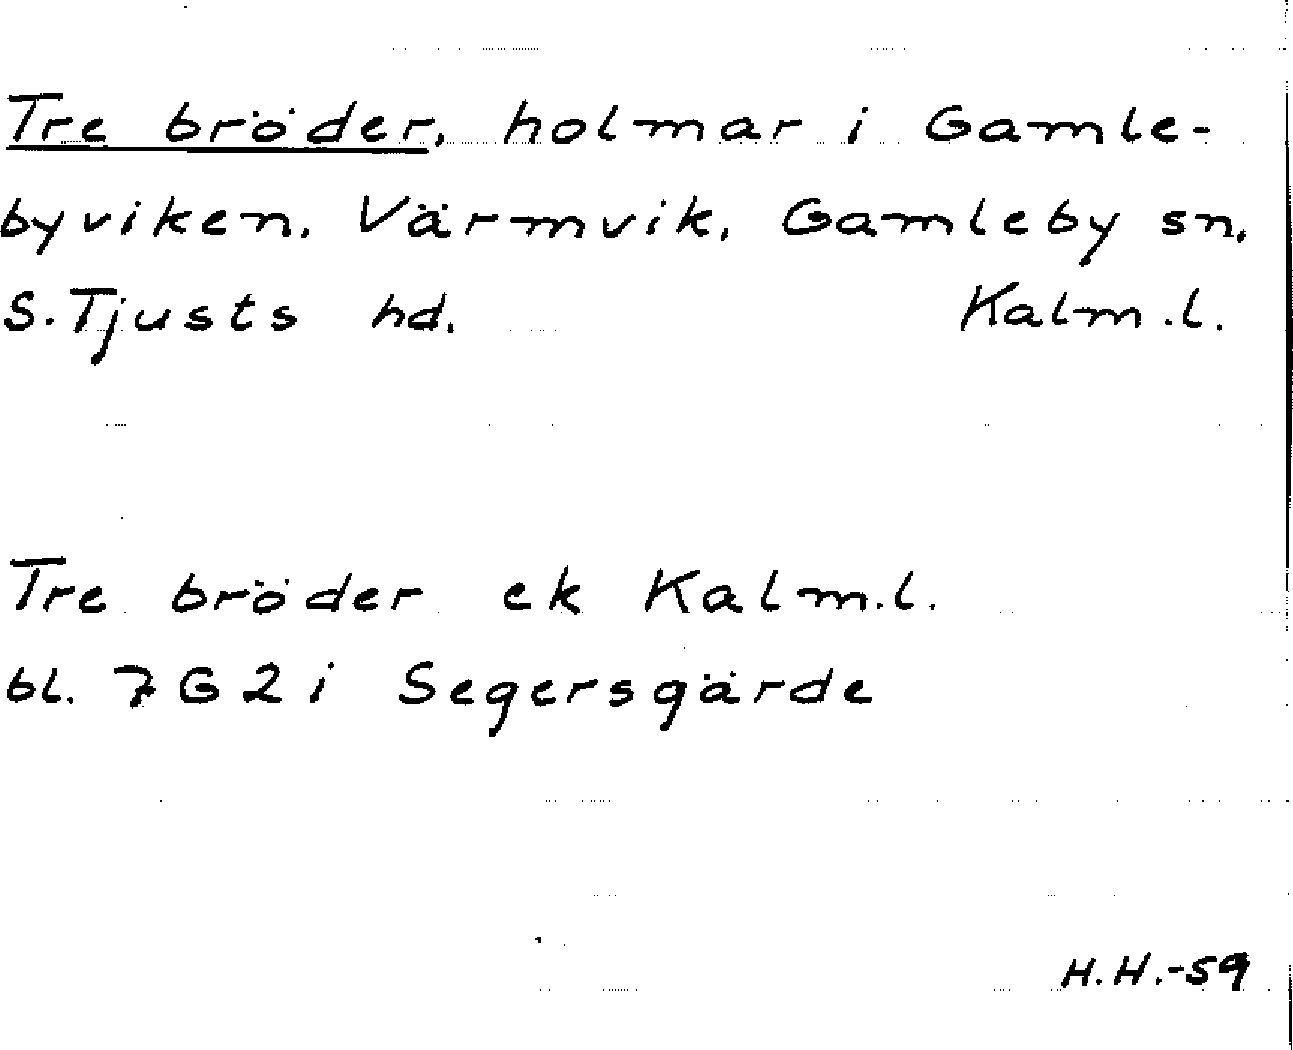 Tre bröder, holmar i Gamle-
byviken. Värmvik, Gamleby sn,
S. Tjusts hd. Kalm.l.
Tre bröder ek Kalm.l.
bl. 7 G 2 i Segersgärde
H.H.-59